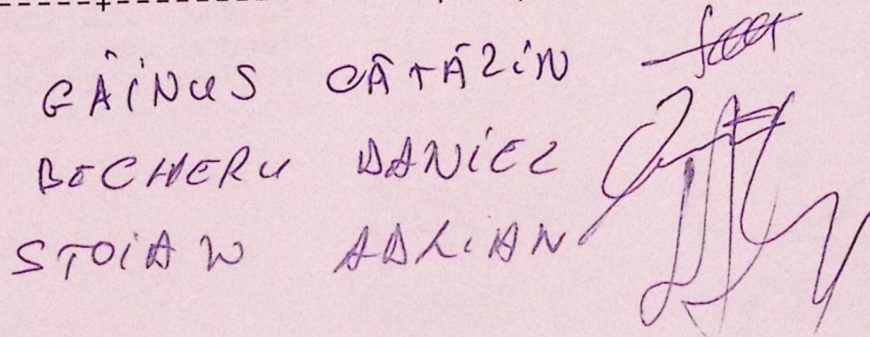 GĂINUS CĂTĂLIN
BECHERU DANIEL
STOIAN ADRIAN